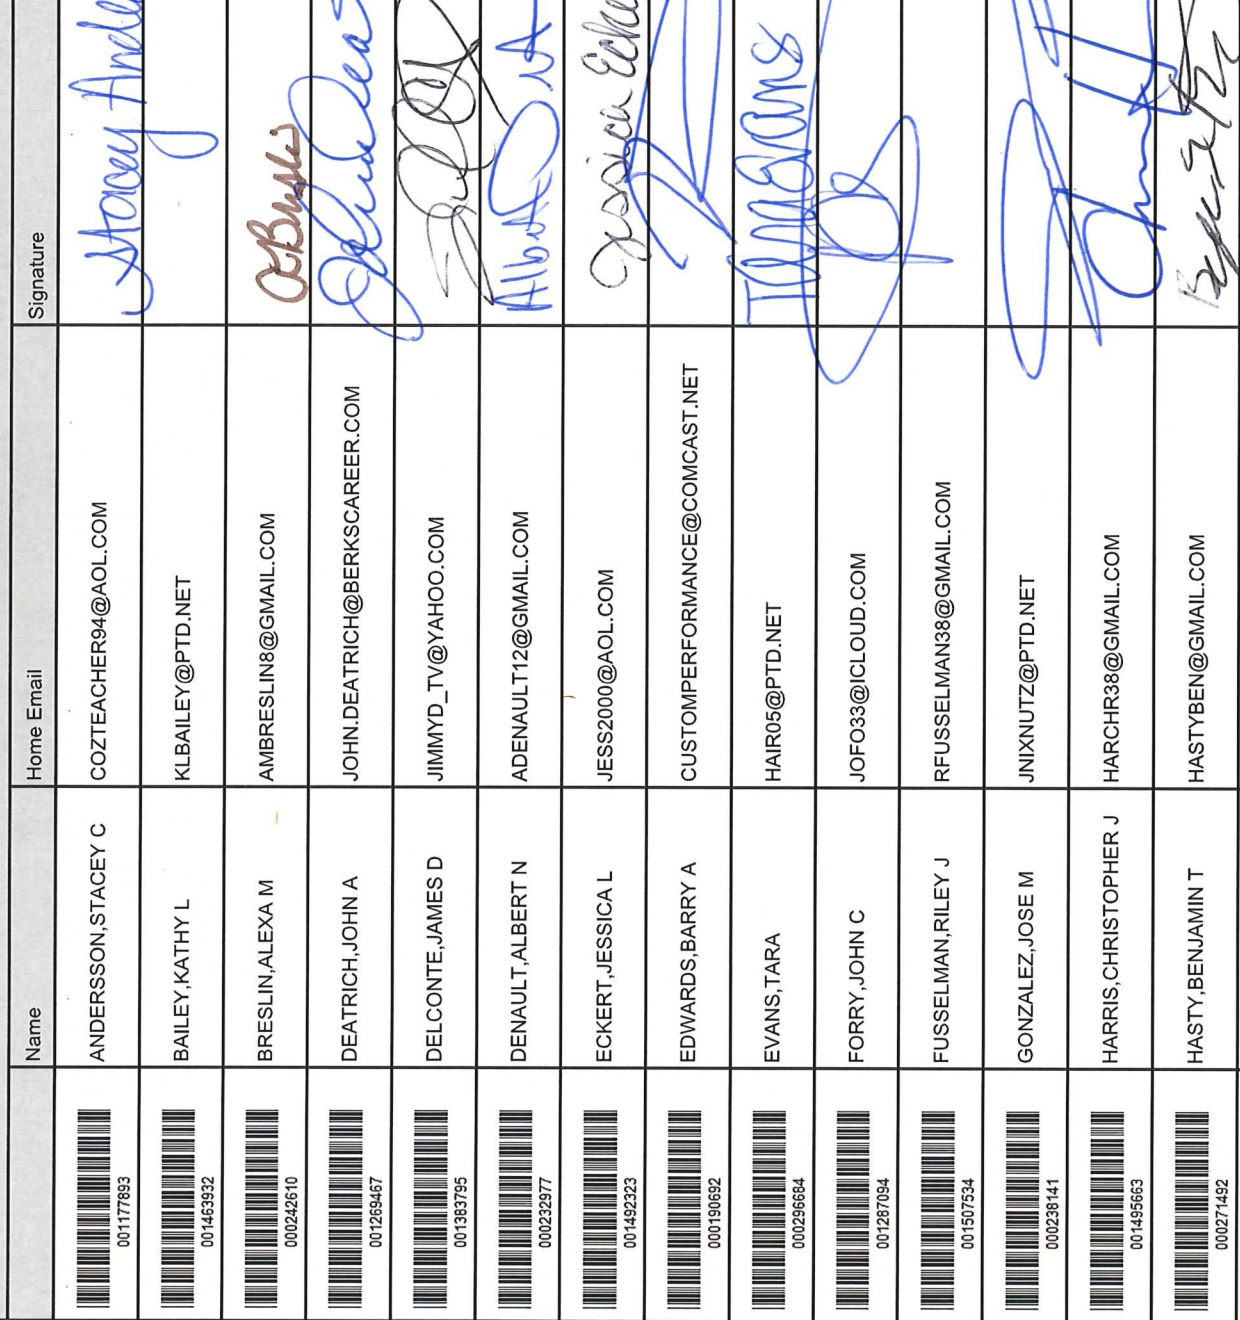 Name Home Email Signature
001177893 ANDERSSON,STACEY C COZTEACHER94@AOL.COM Stacey Ande
001463932 BAILEY,KATHY L KLBAILEY@PTD.NET
000242610 BRESLIN,ALEXA M AMBRESLIN8@GMAIL.COM
001269467 DEATRICH,JOHN A JOHN.DEATRICH@BERKSCAREER.COM
001383795 DELCONTE,JAMES D JIMMYD_TV@YAHOO.COM
000232977 DENAULT,ALBERT N ADENAULT12@GMAIL.COM
001492323 ECKERT,JESSICA L JESS2000@AOL.COM Jessica Ecke
000190692 EDWARDS,BARRY A CUSTOMPERFORMANCE@COMCAST.NET
000296684 EVANS,TARA HAIR05@PTD.NET
001287094 FORRY,JOHN C JOFO33@ICLOUD.COM
001507534 FUSSELMAN,RILEY J RFUSSELMAN38@GMAIL.COM
000238141 GONZALEZ,JOSE M JNIXNUTZ@PTD.NET
001495663 HARRIS,CHRISTOPHER J HARCHR38@GMAIL.COM
000271492 HASTY,BENJAMIN T HASTYBEN@GMAIL.COM